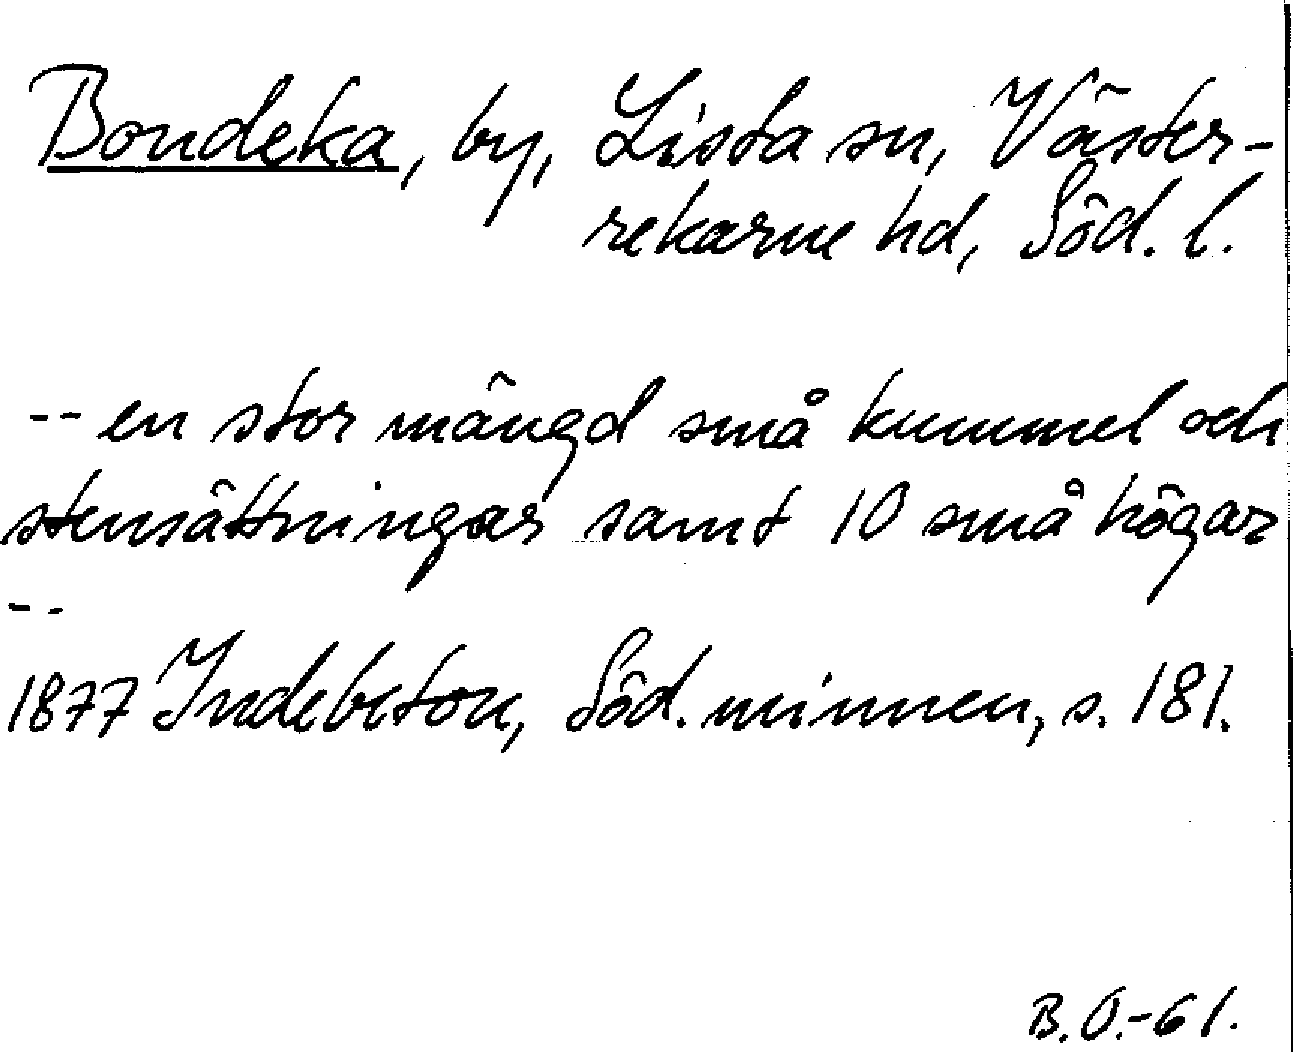 Bondeka, by, Lista sn, Väster-
rekarne hd, Söd. l.
-- en stor mängd små kummel och
stensättningar samt 10 små högar
--
1877 Indebetou, Söd. minnen, s. 181.
B.O.-61.